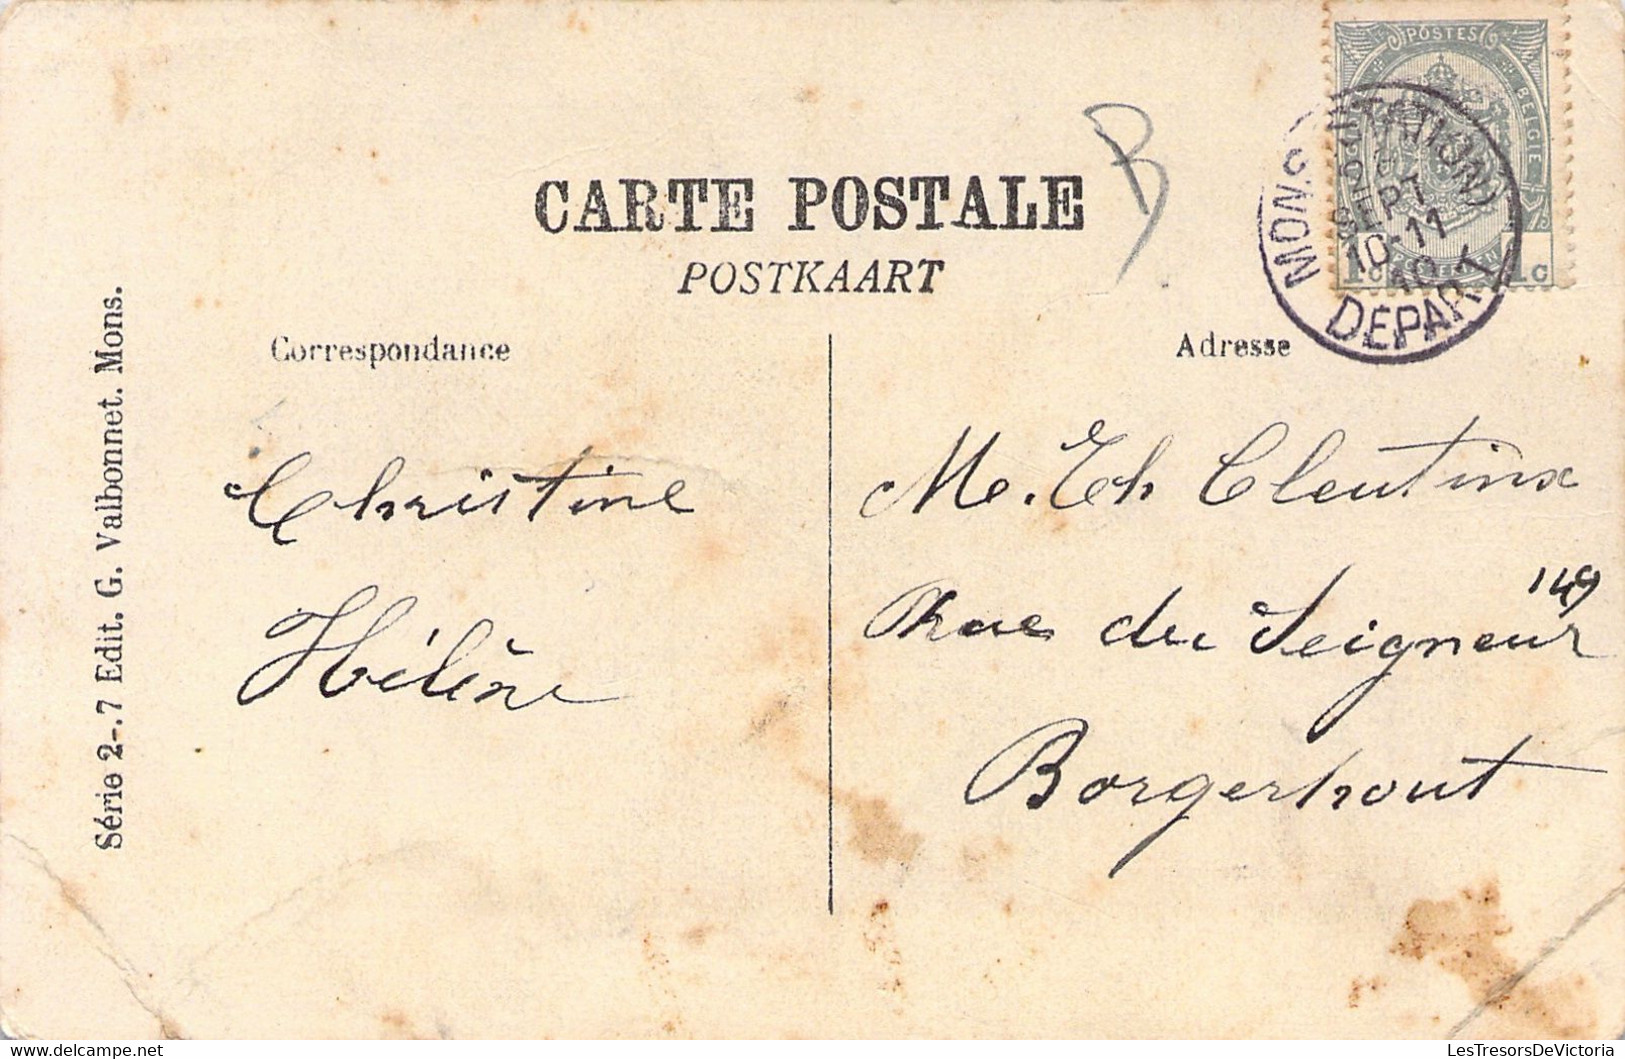 CARTE POSTALE
POSTKAART
B
POSTES
BELGIE
1c 1c
MONS (STATION)
SEPT
10-11
10
DÉPART
Correspondance
Christine
Hélène
Adresse
M. Th Cleutinx
149
Rue du Seigneur
Borgerhout
Série 2-.7 Edit. G. Valbonnet. Mons.
LesTresorsDeVictoria